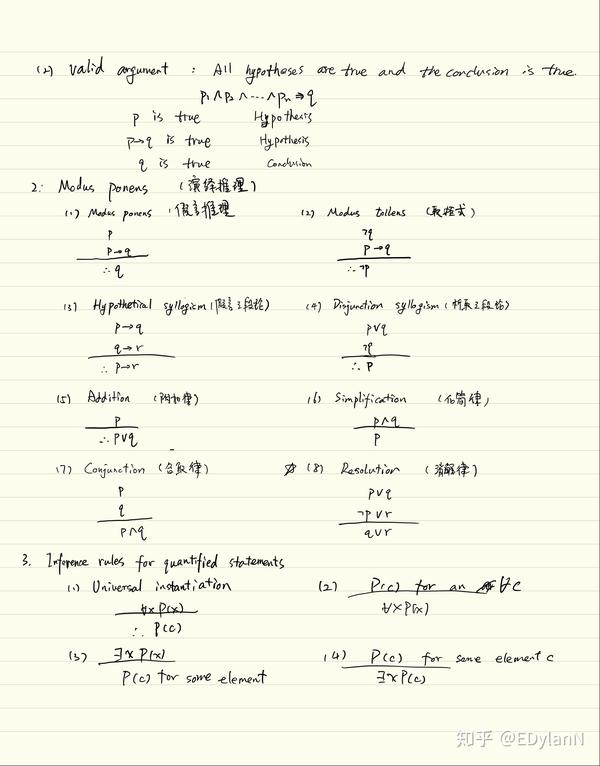 (2) valid argument : All hypotheses are true and the conclusion is true.
p₁∧p₂∧⋯∧pₙ⇒q
p is true Hypothesis
p→q is true Hypothesis
q is true Conclusion
2. Modus ponens (演绎推理)
(1) Modus ponens 假言推理 (2) Modus tollens (取拒式)
p ¬q
p→q p→q
∴ q ∴ ¬p
(3) Hypothetical syllogism (假言三段论) (4) Disjunction syllogism (析取三段论)
p→q p∨q
q→r ¬q
∴ p→r ∴ p
(5) Addition (附加律) (6) Simplification (化简律)
p p∧q
∴ p∨q p
(7) Conjunction (合取律) (8) Resolution (消解律)
p p∨q
q ¬p∨r
p∧q q∨r
3. Inference rules for quantified statements
(1) Universal instantiation (2) P(c) for an ∀c
∀x P(x) ∀x P(x)
∴ P(c)
(3) ∃x P(x) (4) P(c) for some element c
P(c) for some element ∃x P(c)
知乎 @EDylanN